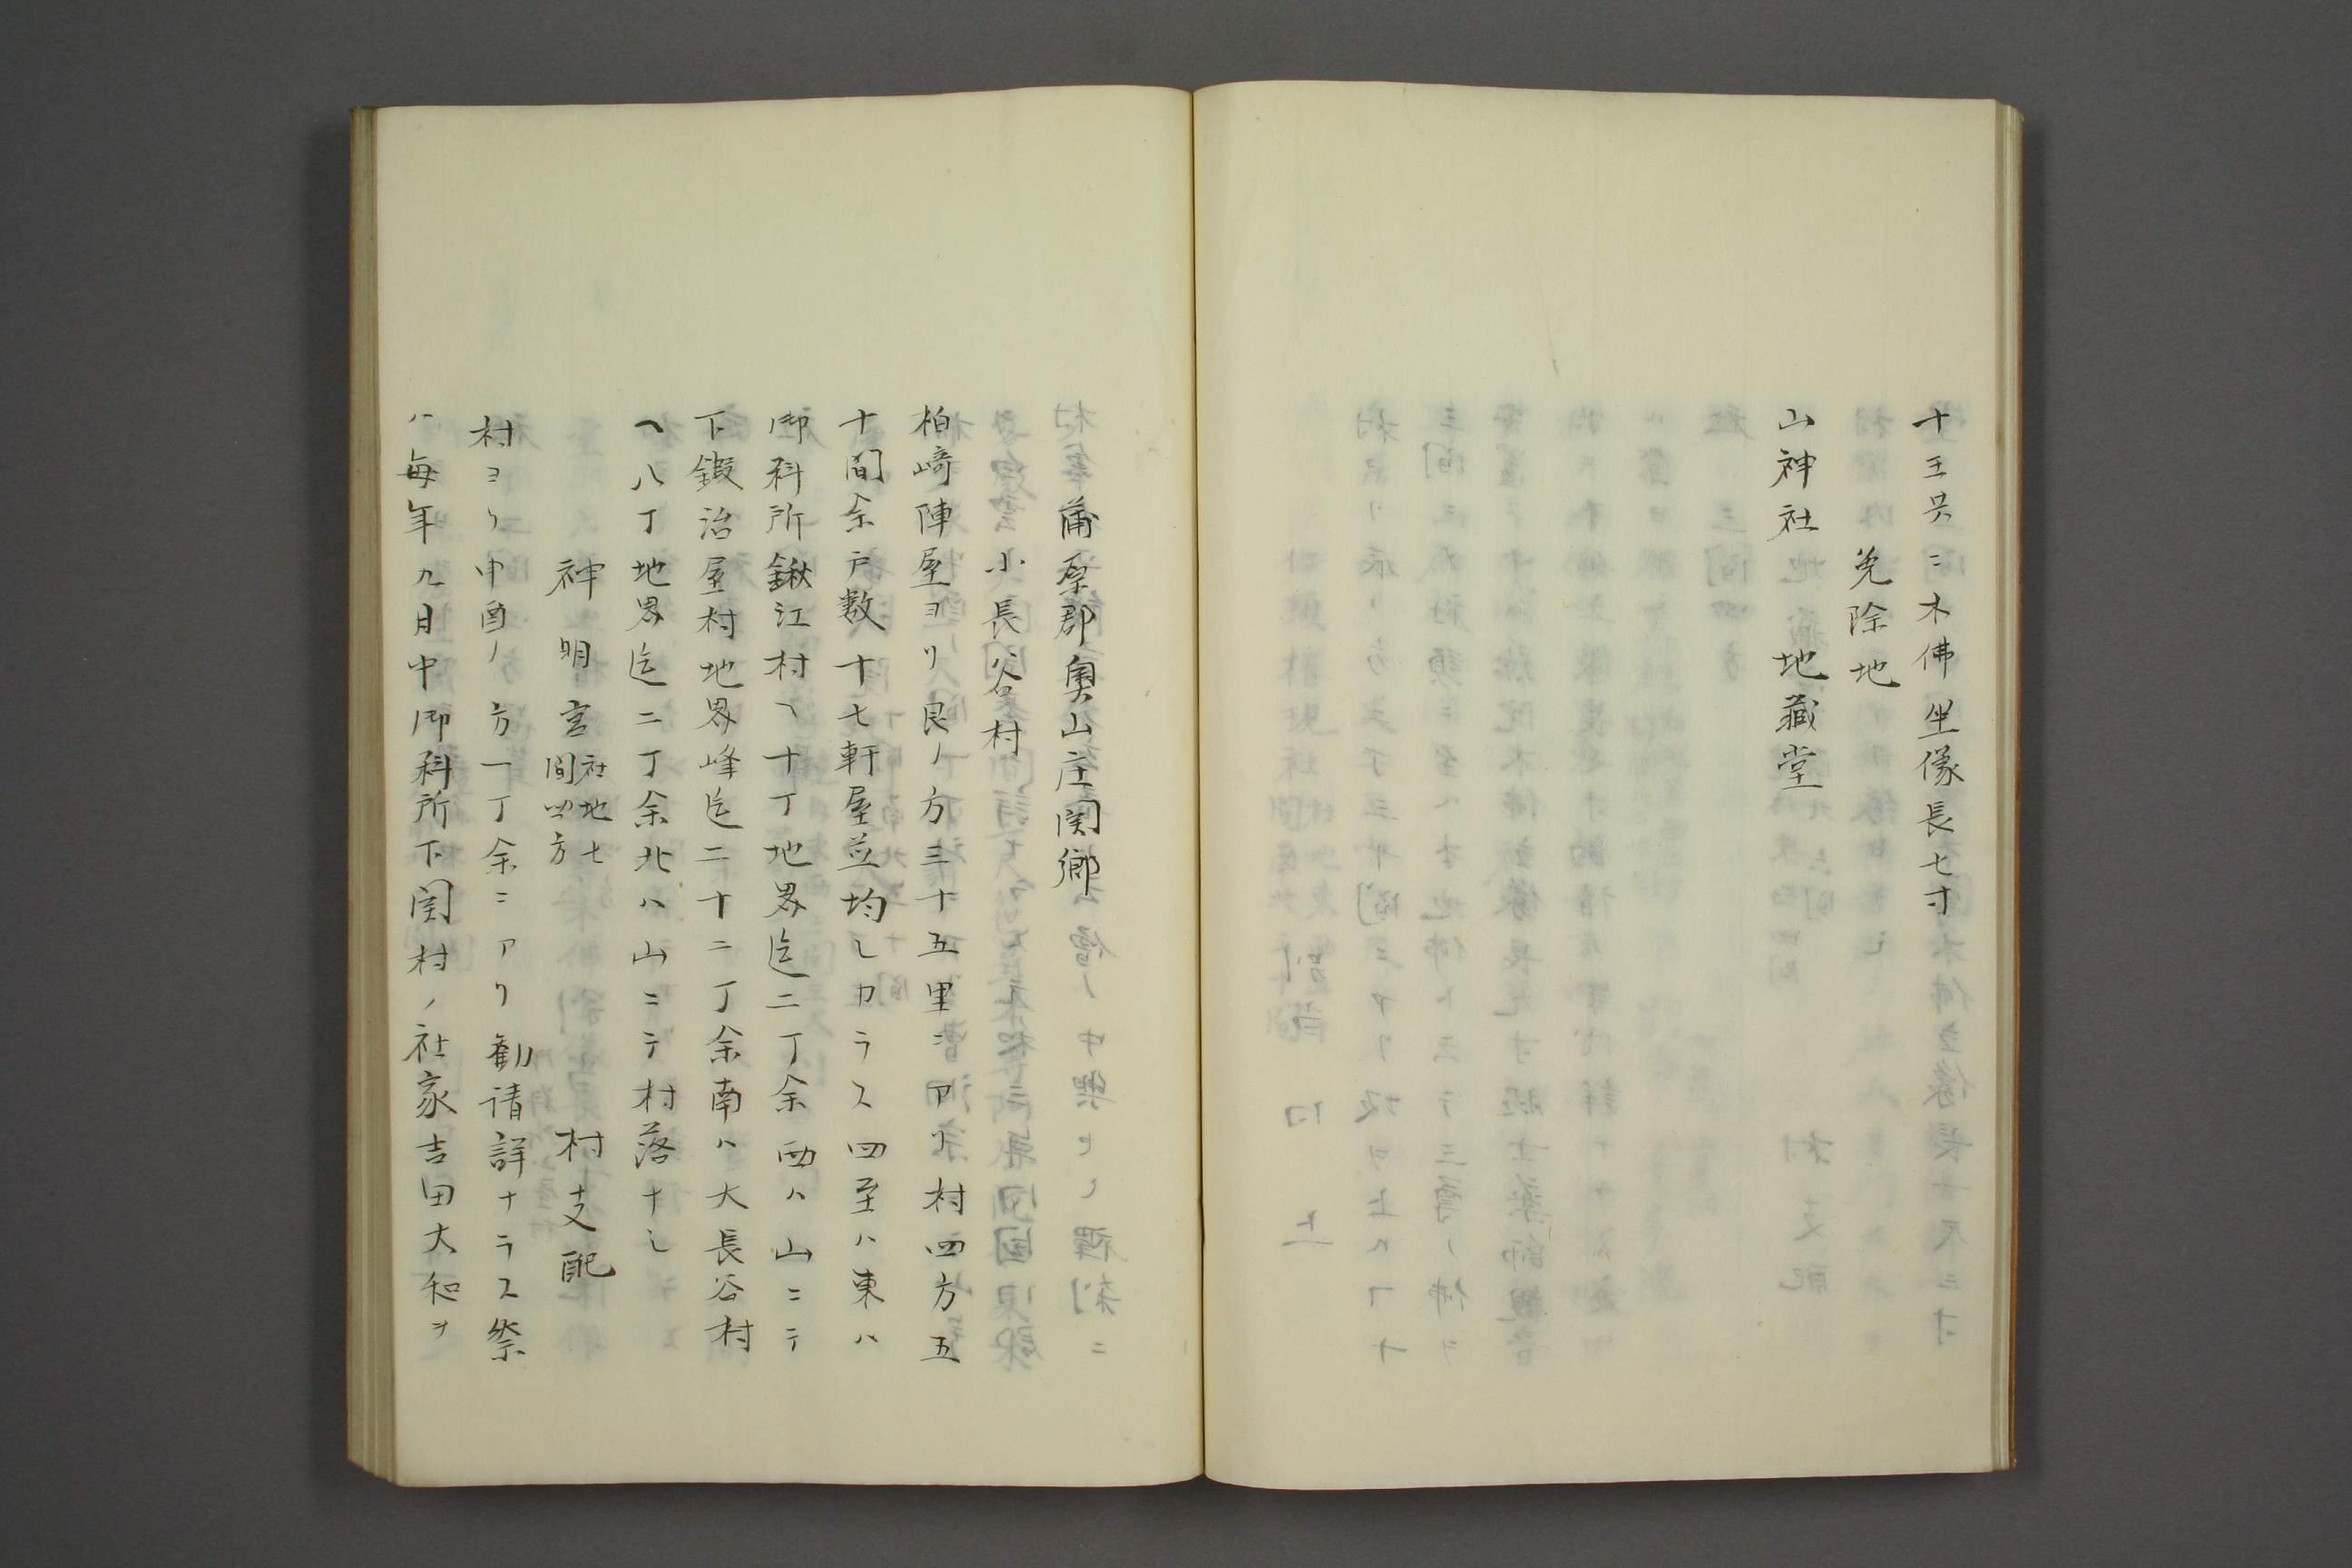 十王共ニ木佛坐像長七寸
免除地
山神社地藏堂
蒲原郡奥山庄関郷
小長谷村
柏﨑陣屋ヨリ艮ノ方三十五里ニアリ村四方五
十間余戸数十七軒屋並均シカラス四至ハ東ハ
御料所鍬江村ヘ十丁地界迄二丁余西ハ山ニテ
下鍜治屋村地界峰迄二十二丁余南ハ大長谷村
ヘ八丁地界迄二丁余北ハ山ニテ村落ナシ
神明宮
社地七
間四方
村支配
村ヨリ申酉ノ方一丁余ニアリ勧請詳ナラス祭
ハ毎年九月中御料所下関村ノ社家吉田大和ヲ